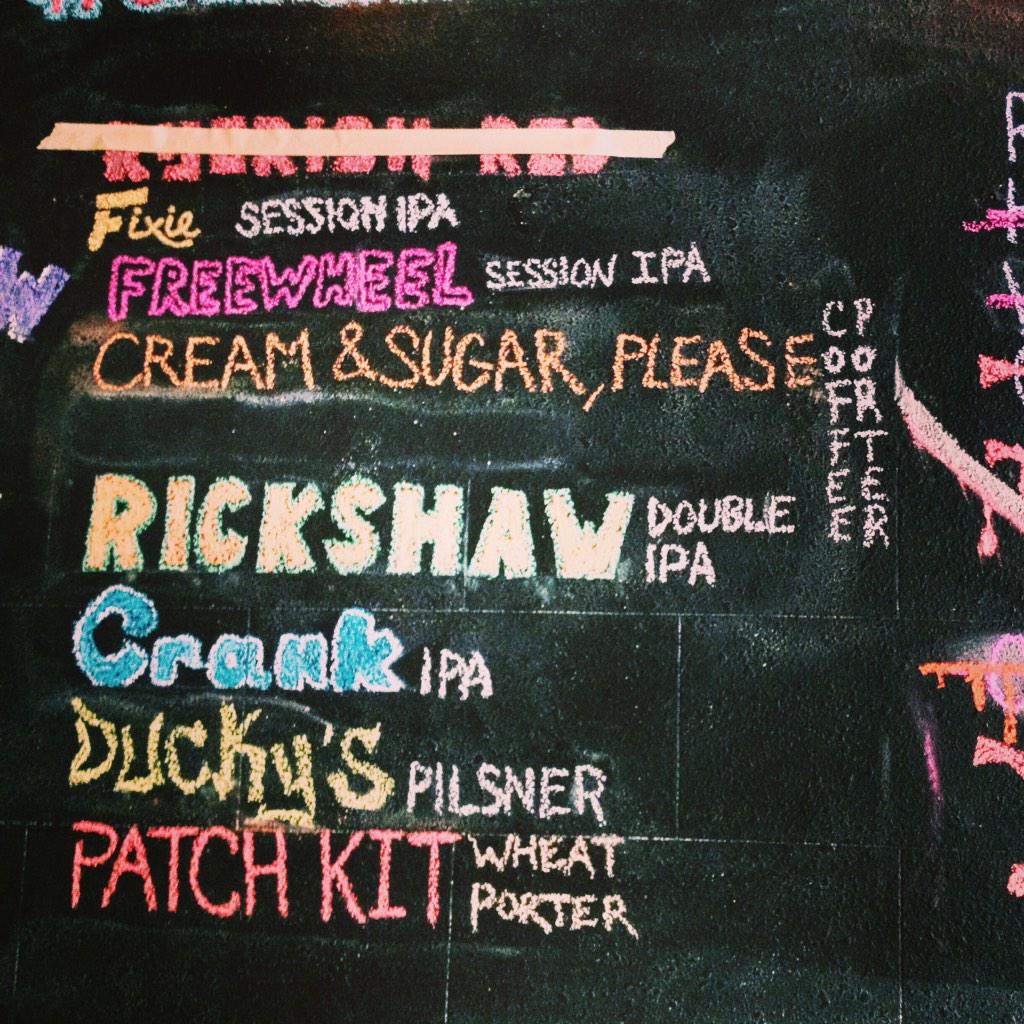 RED
Fixie SESSION IPA
FREEWHEEL SESSION IPA
CREAM & SUGAR, PLEASE COFFEE PORTER
RICKSHAW DOUBLE IPA
Crank IPA
Ducky's PILSNER
PATCH KIT WHEAT PORTER